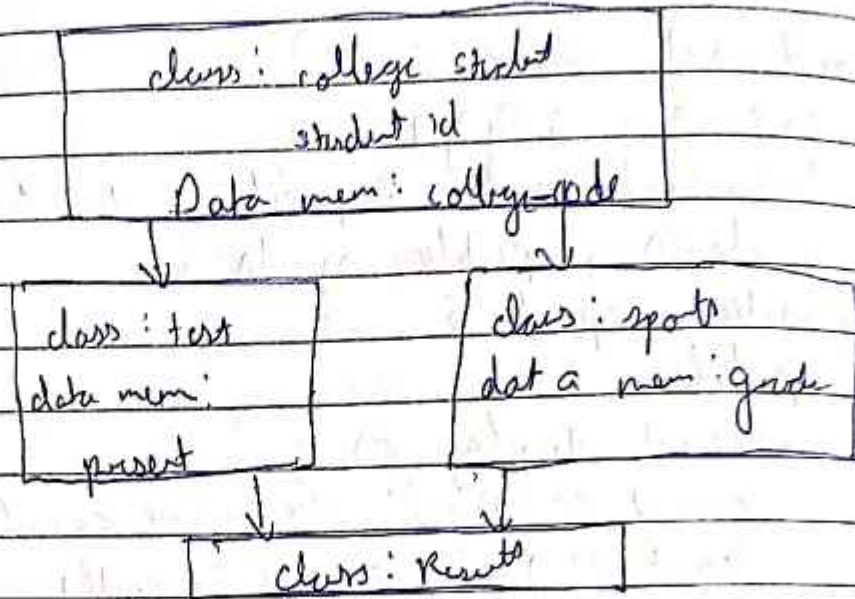 class: college student
student id
Data mem: college-code
class: test
data mem:
present
class: sports
data mem: grade
class: Results